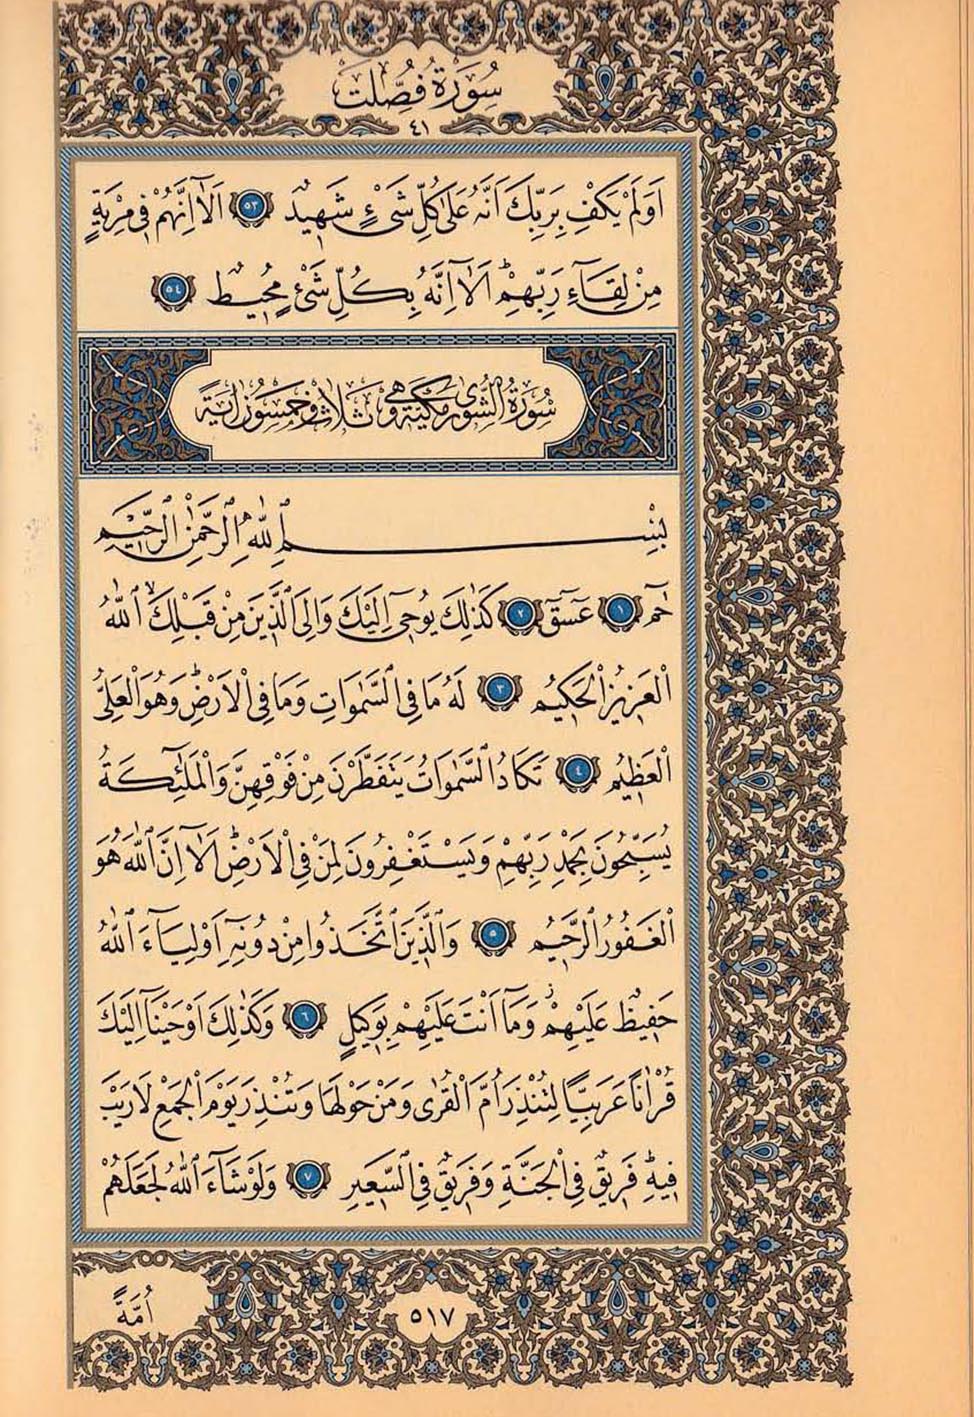 سُورَةُ فُصِّلَتْ
٤١
اَوَلَمْ يَكْفِ بِرَبِّكَ اَنَّهُ عَلٰى كُلِّ شَیْءٍ شَهٖيدٌ ٥٣ اَلَٓا اِنَّهُمْ فٖى مِرْيَةٍ
مِنْ لِقَٓاءِ رَبِّهِمْؕ اَلَٓا اِنَّهُ بِكُلِّ شَیْءٍ مُحٖيطٌ ٥٤
سُورَةُ الشُّورٰى مَكِّيَّةٌ وَهِىَ ثَلَاثٌ وَخَمْسُونَ اٰيَةً
بِسْمِ اللّٰهِ الرَّحْمٰنِ الرَّحٖيمِ
حٰمٓ ١ عٓسٓقٓ ٢ كَذٰلِكَ يُوحٖٓى اِلَيْكَ وَاِلَى الَّذٖينَ مِنْ قَبْلِكَۙ اللّٰهُ
الْعَزٖيزُ الْحَكٖيمُ ٣ لَهُ مَا فِى السَّمٰوَاتِ وَمَا فِى الْاَرْضِؕ وَهُوَ الْعَلِىُّ
الْعَظٖيمُ ٤ تَكَادُ السَّمٰوَاتُ يَتَفَطَّرْنَ مِنْ فَوْقِهِنَّ وَالْمَلٰٓئِكَةُ
يُسَبِّحُونَ بِحَمْدِ رَبِّهِمْ وَيَسْتَغْفِرُونَ لِمَنْ فِى الْاَرْضِؕ اَلَٓا اِنَّ اللّٰهَ هُوَ
الْغَفُورُ الرَّحٖيمُ ٥ وَالَّذٖينَ اتَّخَذُوا مِنْ دُونِهٖٓ اَوْلِيَٓاءَ اللّٰهُ
حَفٖيظٌ عَلَيْهِمْؗ وَمَٓا اَنْتَ عَلَيْهِمْ بِوَكٖيلٍ ٦ وَكَذٰلِكَ اَوْحَيْنَٓا اِلَيْكَ
قُرْاٰنًا عَرَبِيًّا لِتُنْذِرَ اُمَّ الْقُرٰى وَمَنْ حَوْلَهَا وَتُنْذِرَ يَوْمَ الْجَمْعِ لَا رَيْبَ
فٖيهِؕ فَرٖيقٌ فِى الْجَنَّةِ وَفَرٖيقٌ فِى السَّعٖيرِ ٧ وَلَوْ شَٓاءَ اللّٰهُ لَجَعَلَهُمْ
٥١٧
اُمَّةً